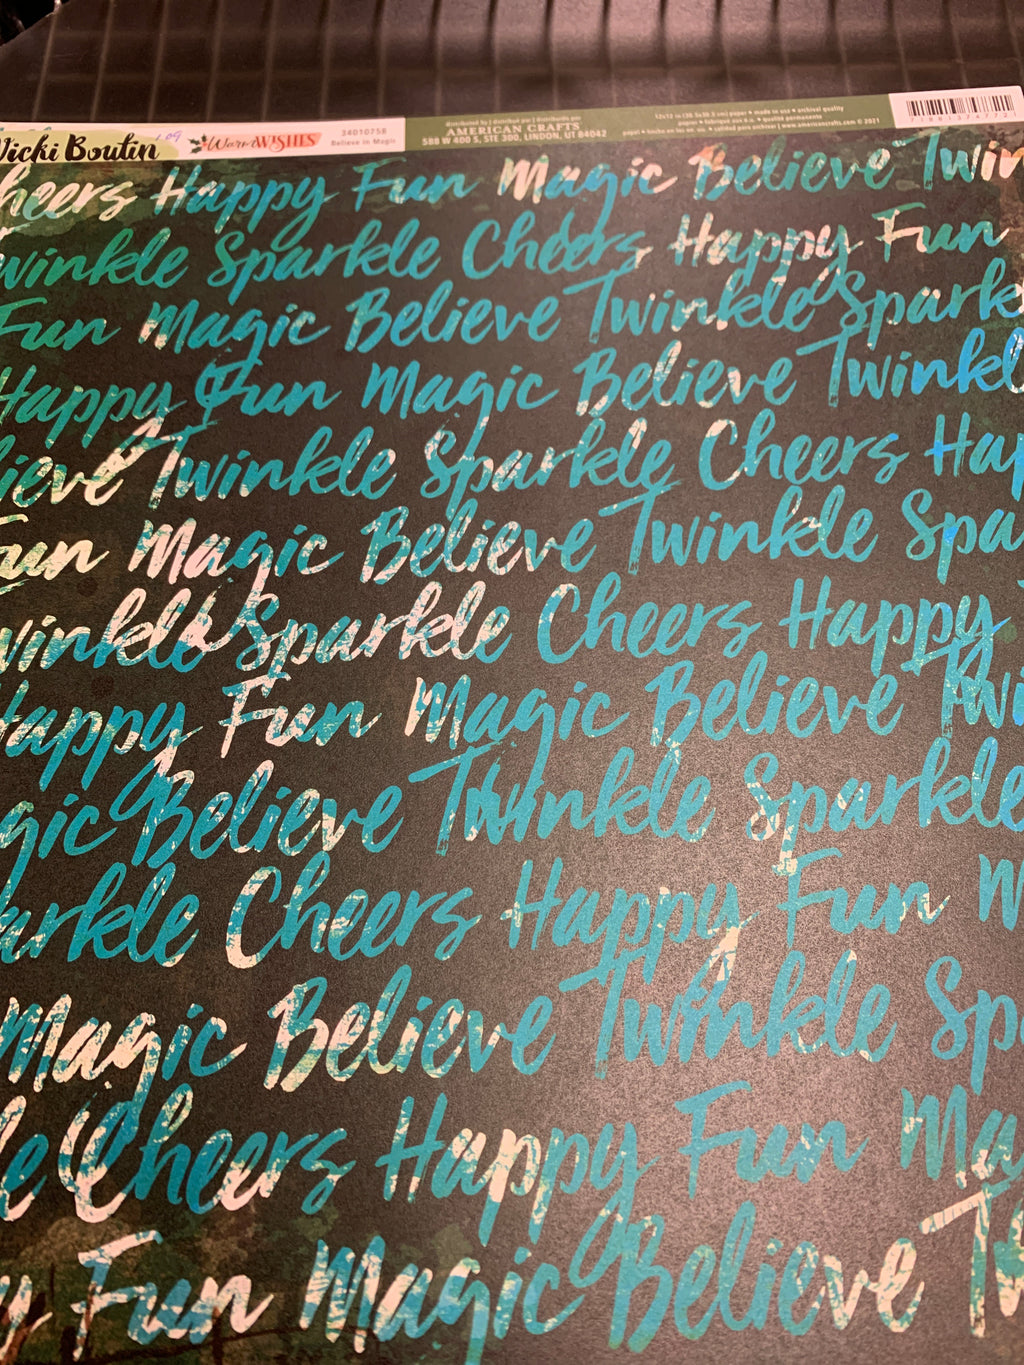 Vicki Boutin
Warm WISHES
34010758
Believe in Magic
distributed by | distribué par | distribuido por
AMERICAN CRAFTS
588 W 400 S, STE 300, LINDON, UT 84042
12x12 in (30.5x30.5 cm) paper • made in usa • archival quality
www.americancrafts.com © 2021
Cheers Happy Fun Magic Believe Twin
Twinkle Sparkle Cheers Happy Fun
Fun Magic Believe Twinkle Sparkl
Happy Fun Magic Believe Twinkl
lieve Twinkle Sparkle Cheers Hap
Fun Magic Believe Twinkle Spa
winkle Sparkle Cheers Happy
Happy Fun Magic Believe Twi
gic Believe Twinkle Sparkle
arkle Cheers Happy Fun M
Magic Believe Twinkle Sp
le Cheers Happy Fun Ma
y Fun Magic Believe T